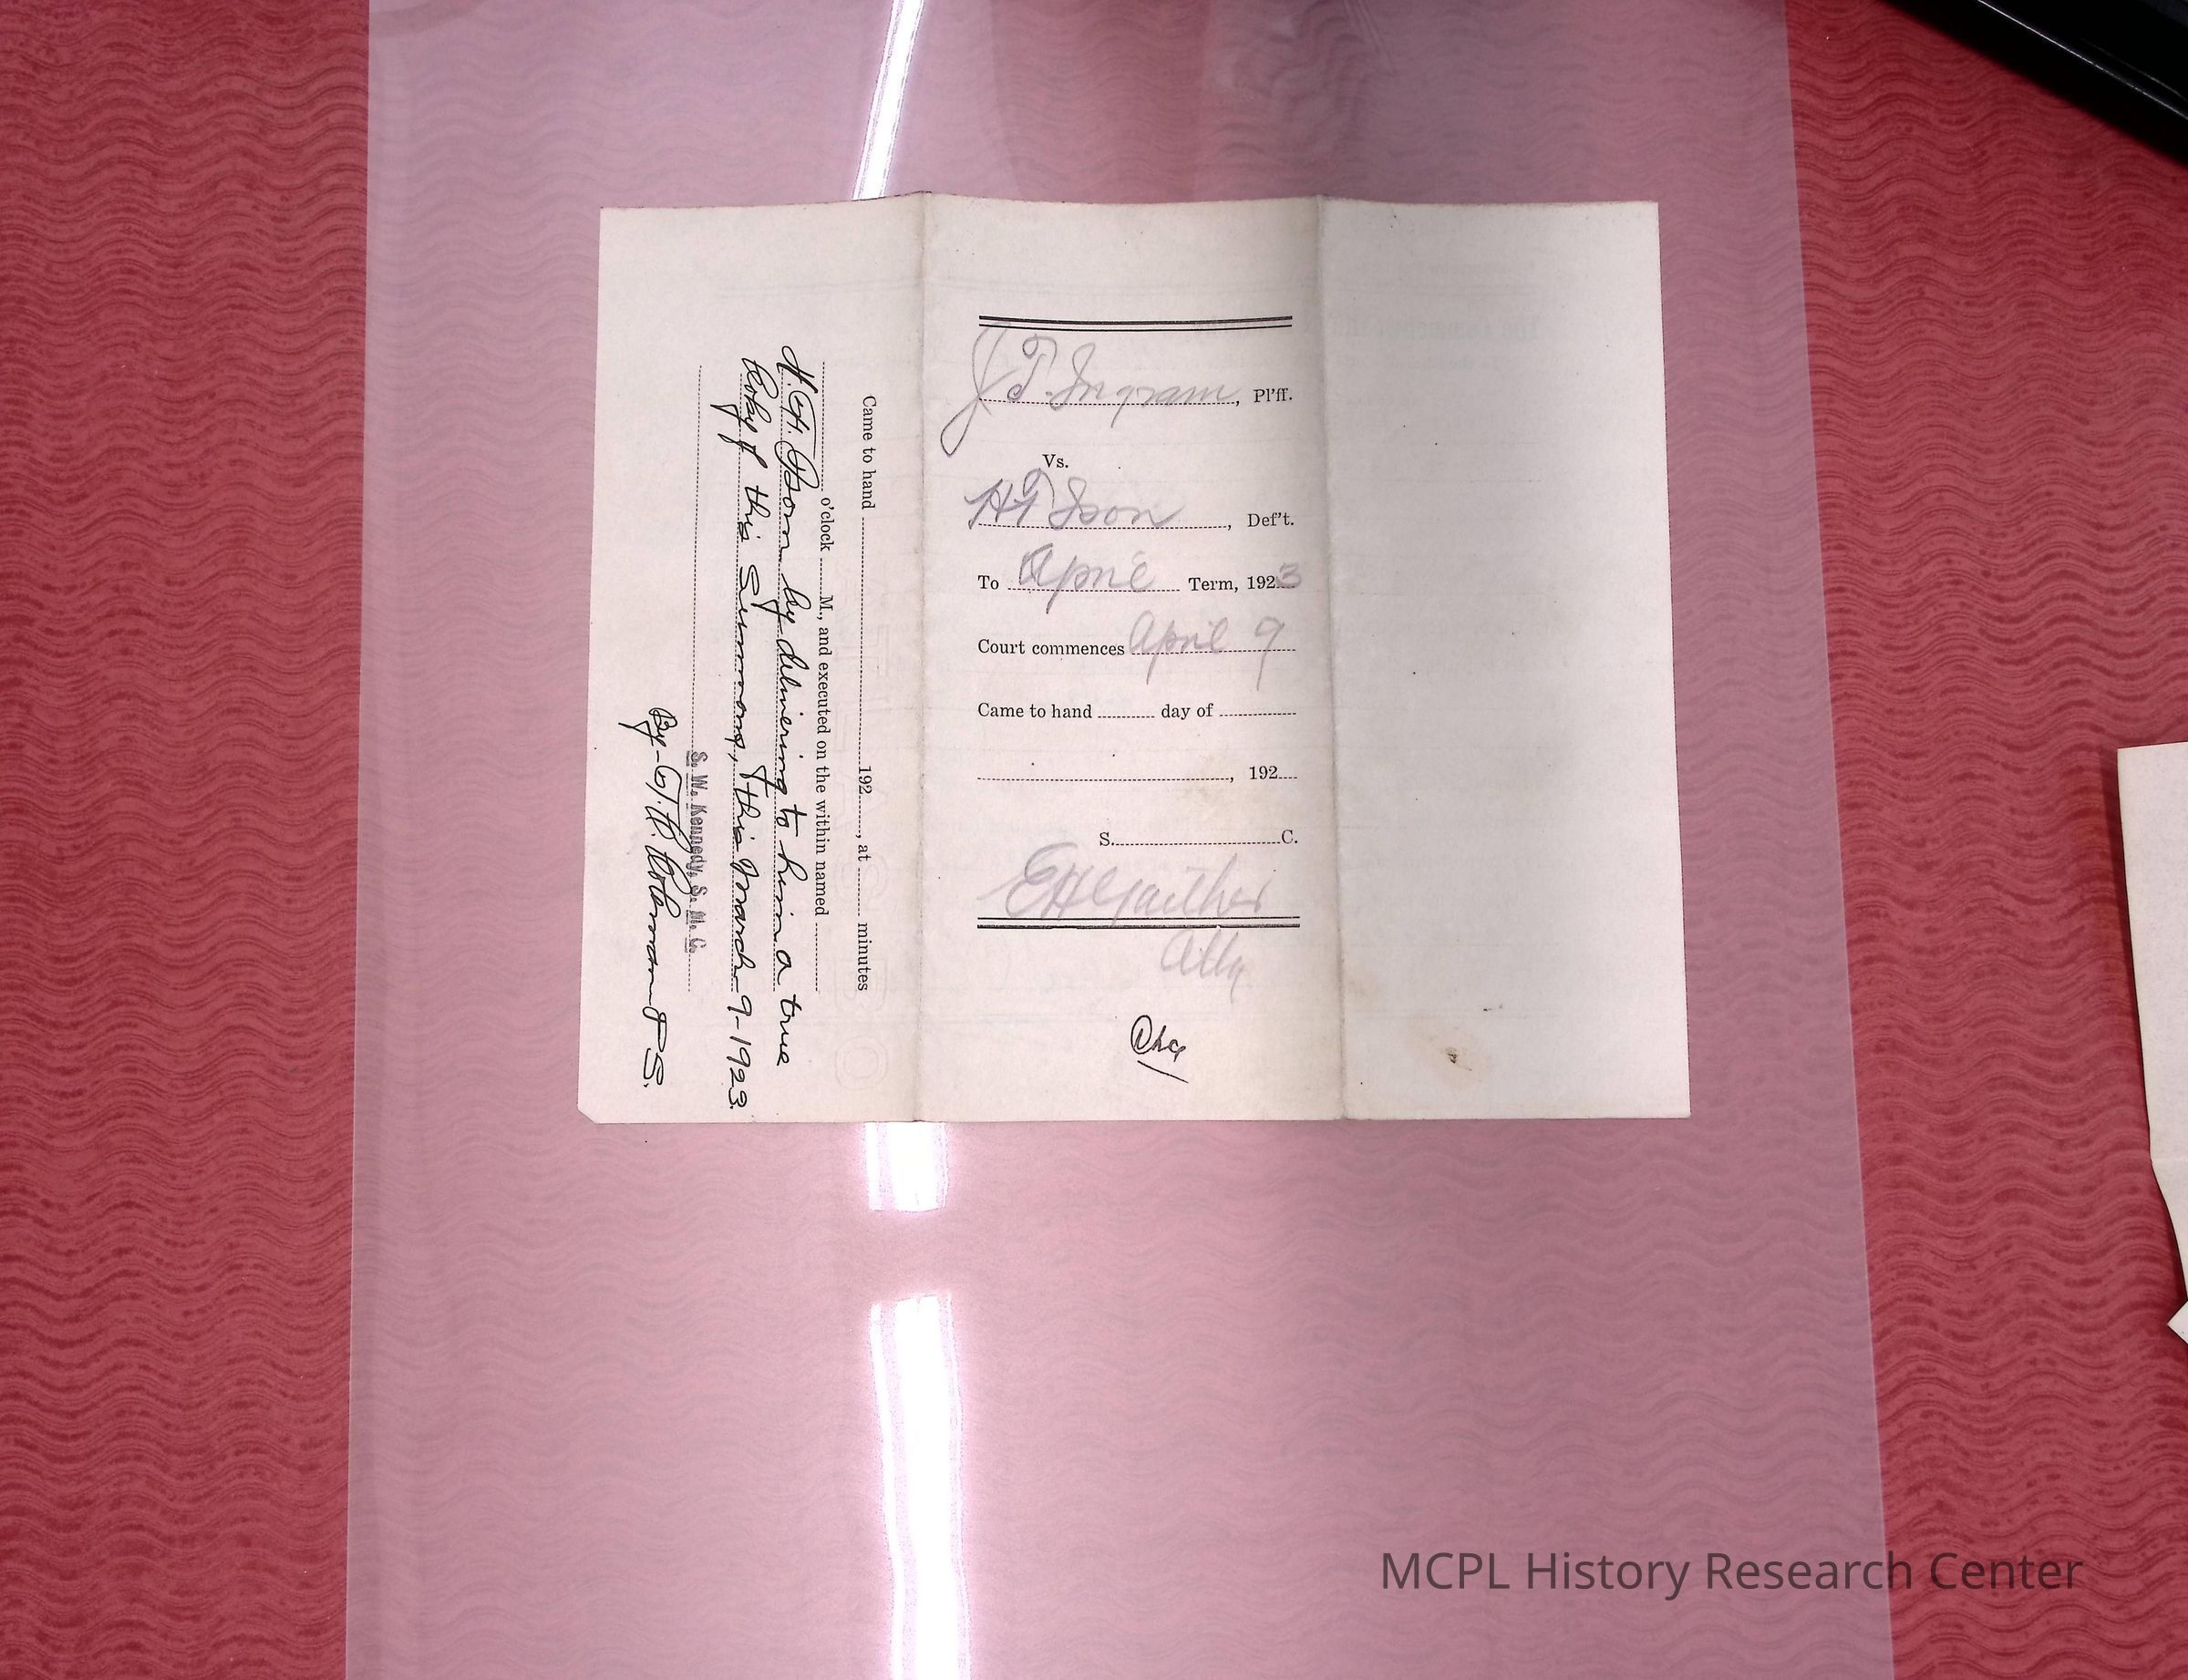 J T. Ingram, Pl'ff.
Vs.
H T Ison, Def't.
To April Term, 1923
Court commences April 9
Came to hand day of
, 192
S. C.
E H Gaither
Atty
Came to hand 192 , at minutes
o'clock M., and executed on the within named
by delivering to him a true
Copy of this Summons, this March 9-1923.
S. W. Kennedy, S. M. C.
By- Coleman D S.
MCPL History Research Center